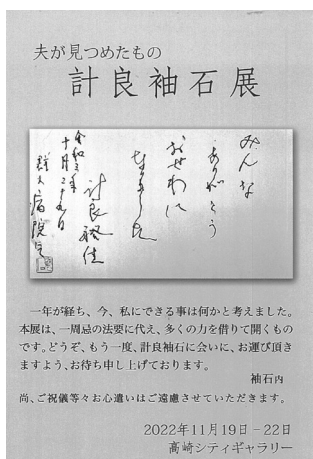 夫が見つめたもの
計良袖石展
みんな
ありがとう
おせわに
なりました
計良
令和三年
十月二十九日
群大病院にて
一年が経ち、今、私にできる事は何かと考えました。
本展は、一周忌の法要に代え、多くの力を借りて開くもの
です。どうぞ、もう一度、計良袖石に会いに、お運び頂き
ますよう、お待ち申し上げております。
袖石内
尚、ご祝儀等々お心遣いはご遠慮させていただきます。
2022年11月19日−22日
高崎シティギャラリー